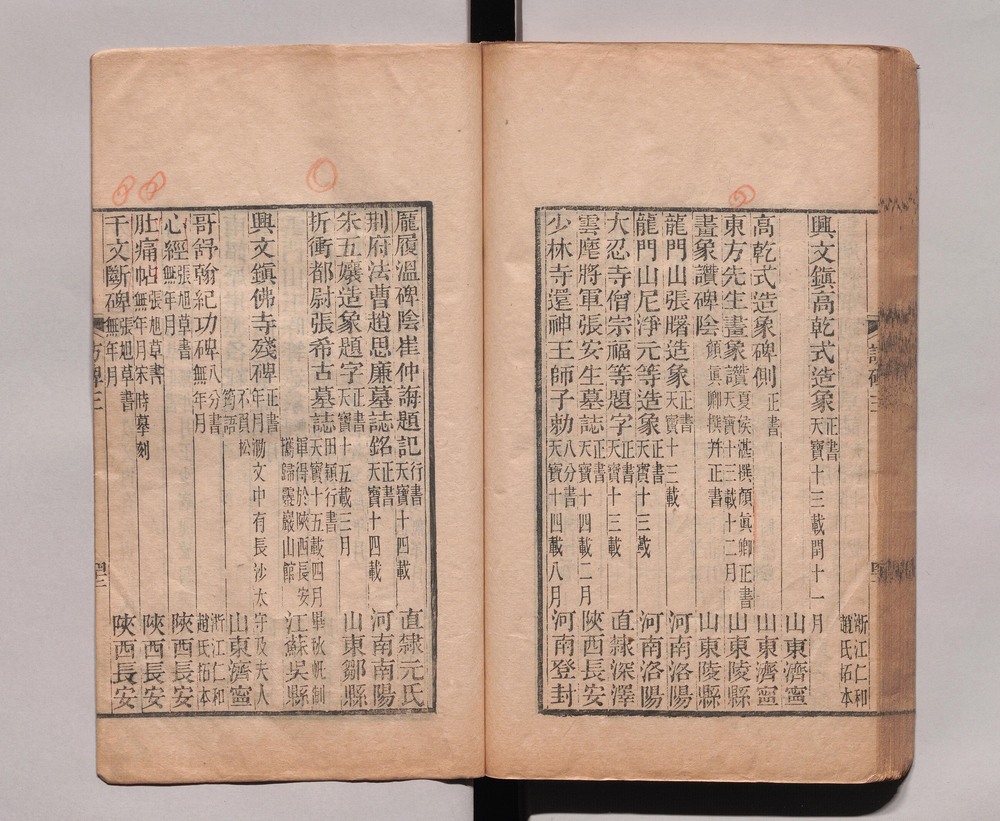 浙江仁和
趙氏拓本
興文鎮高乾式造象 正書 天寶十三載閏十一月
山東濟寧
高乾式造象碑側 正書 山東濟寧
東方先生畫象讚 夏侯湛撰顏眞卿正書 天寶十三載十二月 山東陵縣
畫象讚碑陰 顏眞卿撰并正書 山東陵縣
龍門山張曙造象 正書 天寶十三載 河南洛陽
龍門山尼淨元等造象 正書 天寶十三載 河南洛陽
大忍寺僧宗福等題字 正書 天寶十三載 直隸深澤
雲麾將軍張安生墓誌 正書 天寶十四載二月 陝西長安
少林寺還神王師子勅 八分書 天寶十四載八月 河南登封
龐履溫碑陰崔仲海題記 行書 天寶十四載 直隸元氏
荆府法曹趙思廉墓誌銘 正書 天寶十四載 河南南陽
朱五孃造象題字 正書 天寶十五載三月 山東鄒縣
折衝都尉張希古墓誌 田穎行書 天寶十五載四月畢秋帆制
軍得於陝西長安攜歸靈巖山館 江蘇吳縣
興文鎮佛寺殘碑 正書 年月泐文中有長沙太守及夫人
不頁松筠語 山東濟寧
哥舒翰紀功碑 八分書 無年月 浙江仁和趙氏拓本
心經 張旭草書 無年月 陝西長安
肚痛帖 張旭草書 無年月宋時摹刻 陝西長安
千文斷碑 張旭草書 無年月 陝西長安